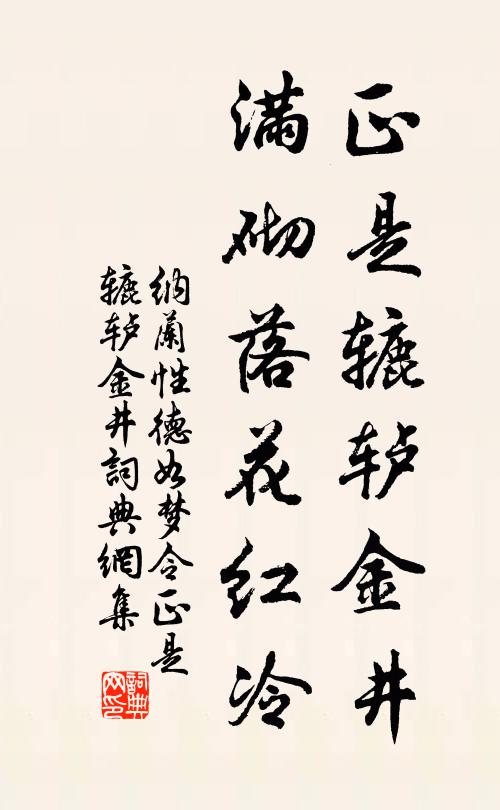 正是辘轳金井
满砌落花红冷
纳蘭性德如梦令正是
辘轳金井詞典網集
詞典
网印